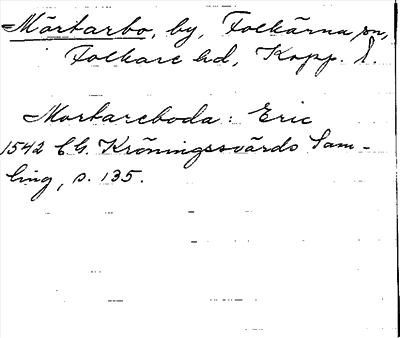 Mårtarbo, by, Folkärna sn,
Folkare hd, Kopp. l.
Mortareboda: Eric
1542 C.G. Kröningssvärds Sam-
ling, s. 135.